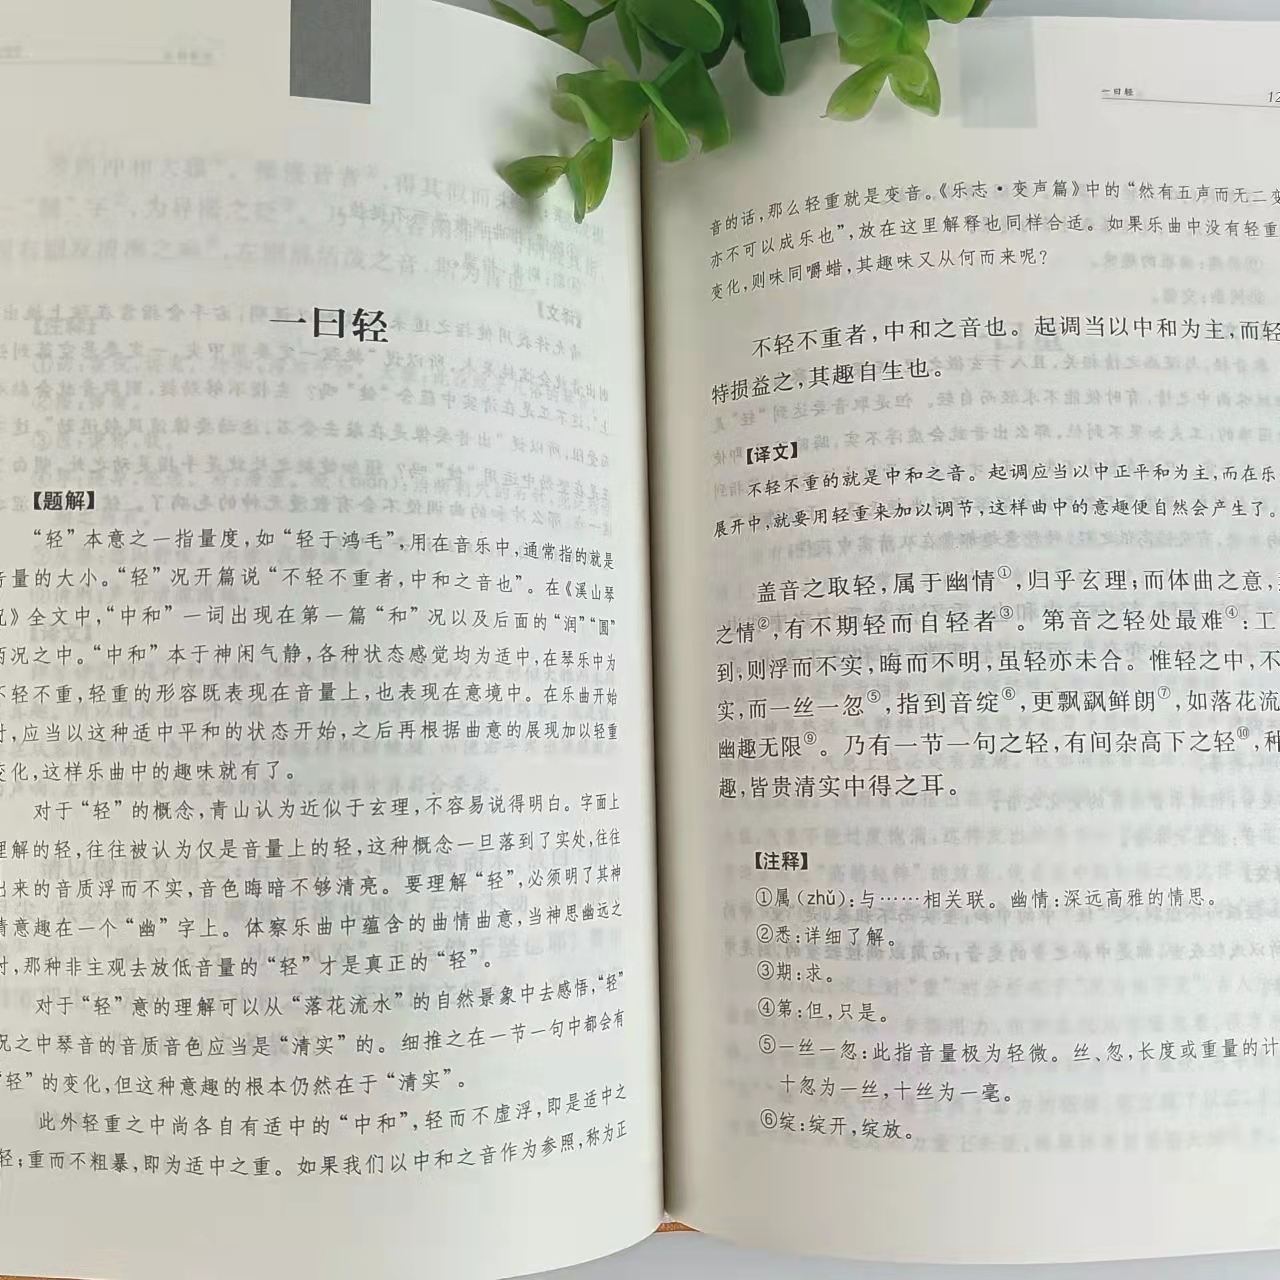 一曰轻
【题解】
“轻”本意之一指量度，如“轻于鸿毛”，用在音乐中，通常指的就是
音量的大小。“轻”况开篇说“不轻不重者，中和之音也”。在《溪山琴
况》全文中，“中和”一词出现在第一篇“和”况以及后面的“润”“圆”
两况之中。“中和”本于神闲气静，各种状态感觉均为适中，在琴乐中为
不轻不重，轻重的形容既表现在音量上，也表现在意境中。在乐曲开始
时，应当以这种适中平和的状态开始，之后再根据曲意的展现加以轻重
变化，这样乐曲中的趣味就有了。
对于“轻”的概念，青山认为近似于玄理，不容易说得明白。字面上
理解的轻，往往被认为仅是音量上的轻，这种概念一旦落到了实处，往往
出来的音质浮而不实，音色晦暗不够清亮。要理解“轻”，必须明了其神
情意趣在一个“幽”字上。体察乐曲中蕴含的曲情曲意，当神思幽远之
时，那种非主观去放低音量的“轻”才是真正的“轻”。
对于“轻”意的理解可以从“落花流水”的自然景象中去感悟，“轻”
况之中琴音的音质音色应当是“清实”的。细推之在一节一句中都会有
“轻”的变化，但这种意趣的根本仍然在于“清实”。
此外轻重之中尚各自有适中的“中和”，轻而不虚浮，即是适中之
轻；重而不粗暴，即为适中之重。如果我们以中和之音作为参照，称为正
一曰轻
12
音的话，那么轻重就是变音。《乐志·变声篇》中的“然有五声而无二变
亦不可以成乐也”，放在这里解释也同样合适。如果乐曲中没有轻重
变化，则味同嚼蜡，其趣味又从何而来呢？
不轻不重者，中和之音也。起调当以中和为主，而轻
特损益之，其趣自生也。
【译文】
不轻不重的就是中和之音。起调应当以中正平和为主，而在乐
展开中，就要用轻重来加以调节，这样曲中的意趣便自然会产生了。
盖音之取轻，属于幽情①，归乎玄理；而体曲之意，
之情②，有不期轻而自轻者③。第音之轻处最难④：工
到；则浮而不实，晦而不明，虽轻亦未合。惟轻之中，不
实，而一丝一忽⑤，指到音绽⑥，更飘飖鲜朗⑦，如落花流
幽趣无限⑨。乃有一节一句之轻，有间杂高下之轻⑩，种
趣，皆贵清实中得之耳。
【注释】
①属（zhǔ）：与……相关联。幽情：深远高雅的情思。
②悉：详细了解。
③期：求。
④第：但，只是。
⑤一丝一忽：此指音量极为轻微。丝、忽，长度或重量的计
十忽为一丝，十丝为一毫。
⑥绽：绽开，绽放。